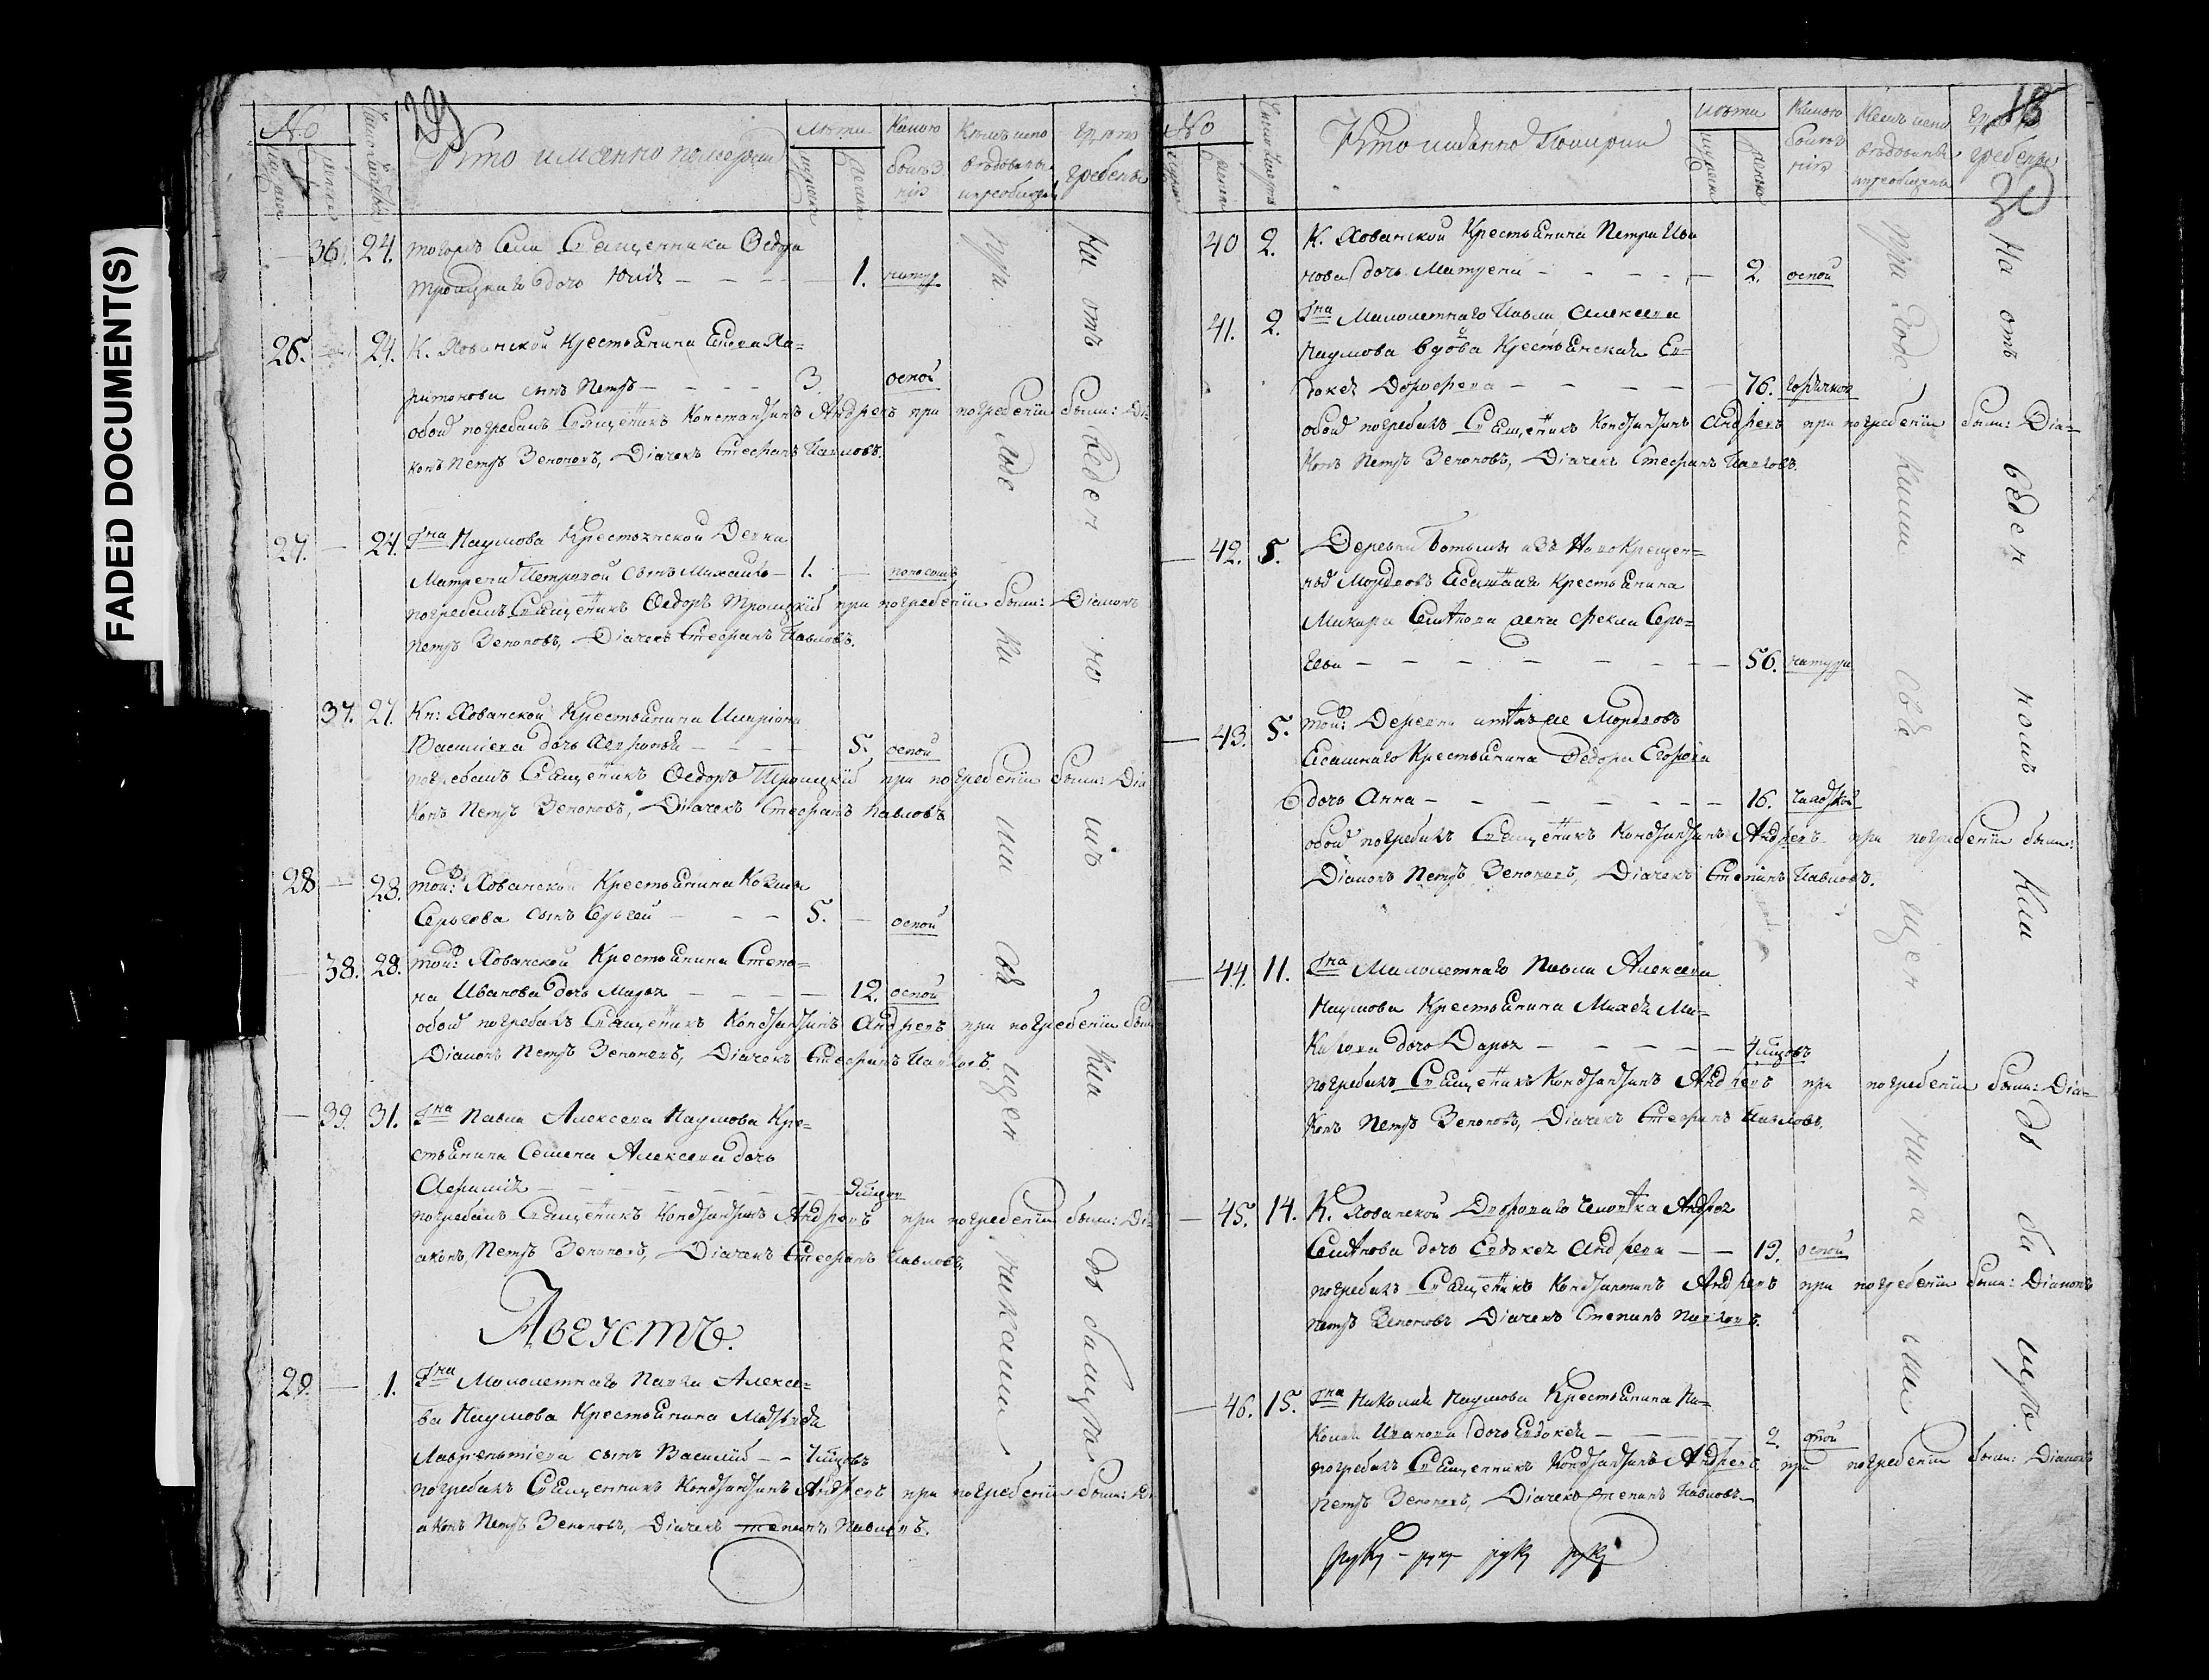 FADED DOCUMENT(S)
№
Кто именно померли
Лѣта
Какою болѣзнію
Кѣмъ исповѣдованы и пріобщены
Гдѣ погребены
36. 24. тогожъ Села Священника Ѳедора
Троицкаго дочь Юлія — 1. натур.
26. 24. К. Хованской Крестьянина Ха=
ритонова сынъ Петръ — 3. оспой
обоих погребалъ Священникъ Константинъ Андреевъ при погребеніи были: Діа
конъ Петръ Зеноновъ, Діячекъ Стефанъ Павловъ.
27. — 24. Гна Наумова Крестьянской Девки
Матрены Петровой сынъ Михайло — 1. — поносомъ
погребалъ Священникъ Ѳедоръ Троицкій при погребеніи были: Діаконъ
Петръ Зеноновъ, Діячекъ Стефанъ Павловъ.
37. 27. Кн: Хованской Крестьянина Иларіона
Васильева дочь — 5. оспой
погребалъ Священникъ Ѳедоръ Троицкій при погребеніи были: Діа
конъ Петръ Зеноновъ, Діячекъ Стефанъ Павловъ
28 — 28. той: Хованской Крестьянина Козмы
Сергѣева сынъ Сергей — 5. — оспой
— 38. 28. той: Хованской Крестьянина Степа=
на Иванова дочь Марья — 12. оспой
обоих погребалъ Священникъ Константинъ Андреевъ при погребеніи были
Діаконъ Петръ Зеноновъ, Діячекъ Стефанъ Павловъ.
— 39. 31. Гна Павла Алексеева Наумова Кре=
стьянина Семена Алексеева дочь
— 9 мцов
погребалъ Священникъ Константинъ Андреевъ при погребеніи были: Ді
аконъ, Петръ Зеноновъ, Діячекъ Стефанъ Павловъ.
Августъ.
29. — 1. Гна Малолетнаго Павла Алексее=
ва Наумова Крестьянина Матвея
Лаврентьева сынъ Василій — 7 мцовъ
погребалъ Священникъ Константинъ Андреевъ при погребеніи были: Ді
аконъ Петръ Зеноновъ, Діячекъ Степанъ Павловъ.
При ходс ки ми свя щен никами
На от веден но мъ кла дъ бищѣ
30
№
Кто именно Померли
Лѣта
Какою болѣзнію
Кемъ исповѣдованы и пріобщены
погребены
40 2. К. Хованской Крестьянина Петра Ива
нова дочь Матрена — 2. оспой
41. 2. Гна Малолетнаго Павла Алексеева
Наумова вдова Крестьянская Ев=
докея Дорофеева — 76. горячкой
обоих погребалъ Священникъ Константинъ Андреевъ при погребеніи были: Діа=
конъ Петръ Зеноновъ, Діячекъ Стефанъ Павловъ.
— 42. 5. Деревни изъ Новокрещен=
ныхъ Мордвовъ Ясашнаго Крестьянина
Макара жена Фекла Серге=
ева — 56. натура
— 43. 5. той: Деревни Мордвовъ
Ясашнаго Крестьянина Ѳедора Егорова
дочь Анна — 16. чахоткой
обоих погребалъ Священникъ Константинъ Андреевъ при погребеніи были:
Діаконъ Петръ Зеноновъ, Діячекъ Степанъ Павловъ.
— 44. 11. Гна Малолетнаго Павла Алексеева
Наумова Крестьянина Михея Ми=
хайлова дочь Дарья — 4 мцовъ
погребалъ Священникъ Константинъ Андреевъ при погребеніи были: Діа=
конъ Петръ Зеноновъ, Діячекъ Стефанъ Павловъ.
— 45. 14. К. Хованской Дворового человека Андрея
дочь Евдокея Андреева — 19. оспой
погребалъ Священникъ Константинъ Андреевъ при погребеніи были: Діаконъ
Петръ Зеноновъ Діячекъ Степанъ Павловъ.
— 46. 15. Гна Николая Наумова Крестьянина Ни=
колая Иванова дочь Евдокея — 2. оспой
погребалъ Священникъ Константинъ Андреевъ при погребеніи были: Діаконъ
Петръ Зеноновъ, Діячекъ Степанъ Павловъ
При ходс кими свя щен ника ми
На отъ веден номъ кла дъ би щѣ